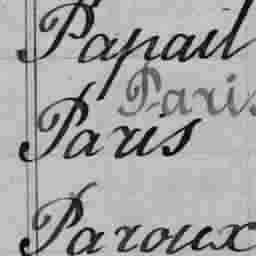 Papail
Paris
Paris
Paroux